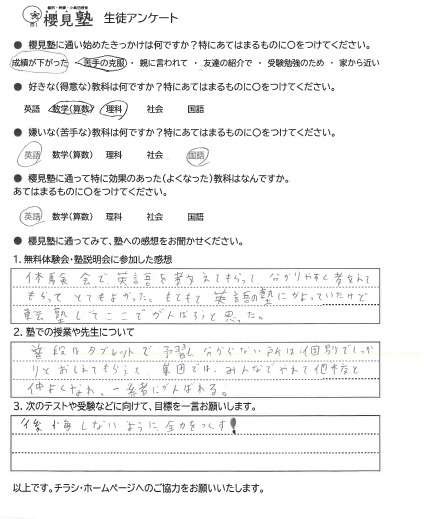 櫻見塾 生徒アンケート
● 櫻見塾に通い始めたきっかけは何ですか?特にあてはまるものに〇をつけてください。
成績が下がった ・ 苦手の克服 ・ 親に言われて ・ 友達の紹介で ・ 受験勉強のため ・ 家から近い
● 好きな(得意な)教科は何ですか?特にあてはまるものに〇をつけてください。
英語 数学(算数) 理科 社会 国語
● 嫌いな(苦手な)教科は何ですか?特にあてはまるものに〇をつけてください。
英語 数学(算数) 理科 社会 国語
● 櫻見塾に通って特に効果のあった(よくなった)教科はなんですか。
あてはまるものに〇をつけてください。
英語 数学(算数) 理科 社会 国語
● 櫻見塾に通ってみて、塾への感想をお聞かせください。
1. 無料体験会・塾説明会に参加した感想
体験会で英語を教えてもらって 分かりやすく
もらって とてもよかった。 英語の塾にかよっていたけど
塾 してここでがんばろうと思った。
2. 塾での授業や先生について
普段はタブレットで予習し 分からない所は個別でしっか
りとおしえてもらって、 では、みんなでやれて
仲よくなれ、一緒にがんばれる。
3. 次のテストや受験などに向けて、目標を一言お願いします。
後悔しないように全力をつくす!
以上です。チラシ・ホームページへのご協力をお願いいたします。